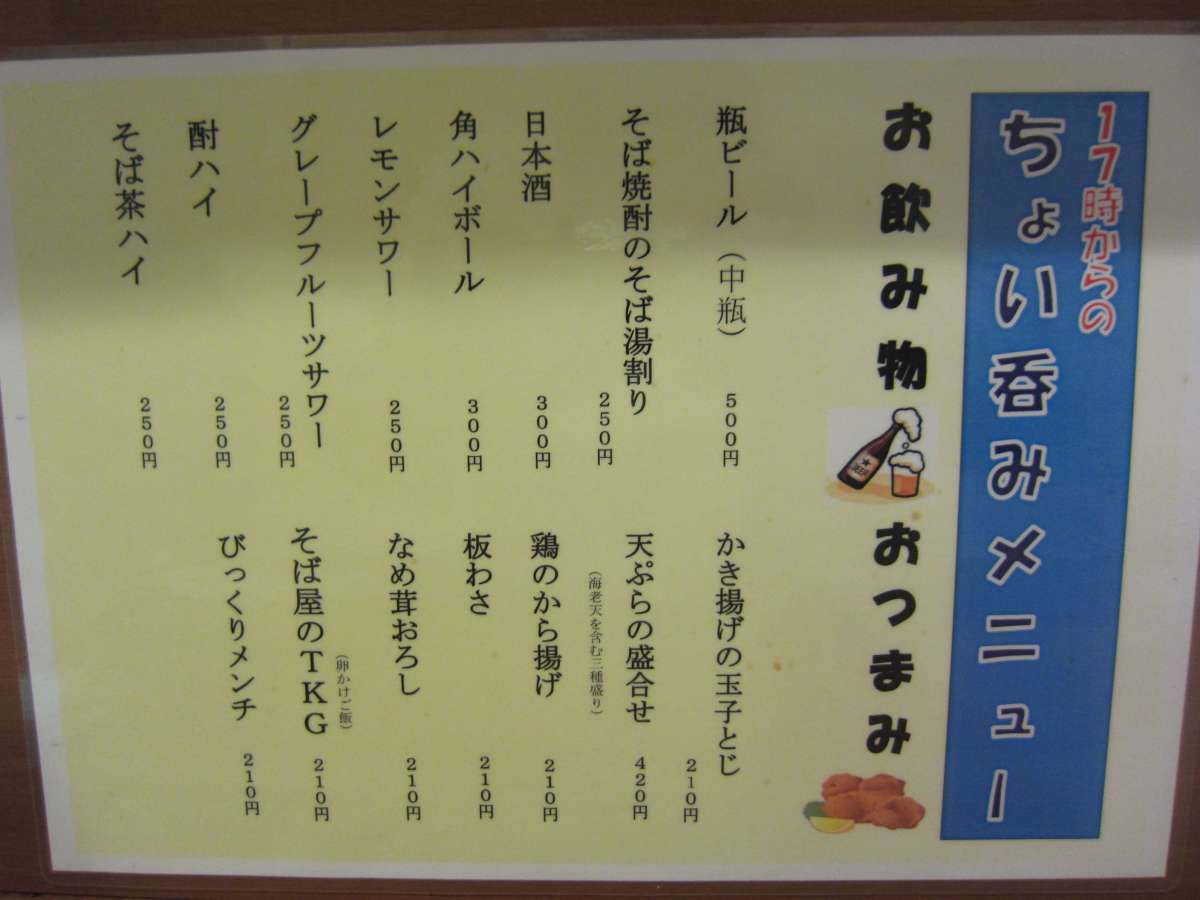 17時からの
ちょい呑みメニュー
お飲み物
瓶ビール（中瓶）
500円
そば焼酎のそば湯割り
250円
日本酒
300円
角ハイボール
300円
レモンサワー
250円
グレープフルーツサワー
250円
酎ハイ
250円
そば茶ハイ
250円
おつまみ
かき揚げの玉子とじ
210円
天ぷらの盛合せ
（海老天を含む三種盛り）
420円
鶏のから揚げ
210円
板わさ
210円
なめ茸おろし
210円
そば屋のTKG
（卵かけご飯）
210円
びっくりメンチ
210円